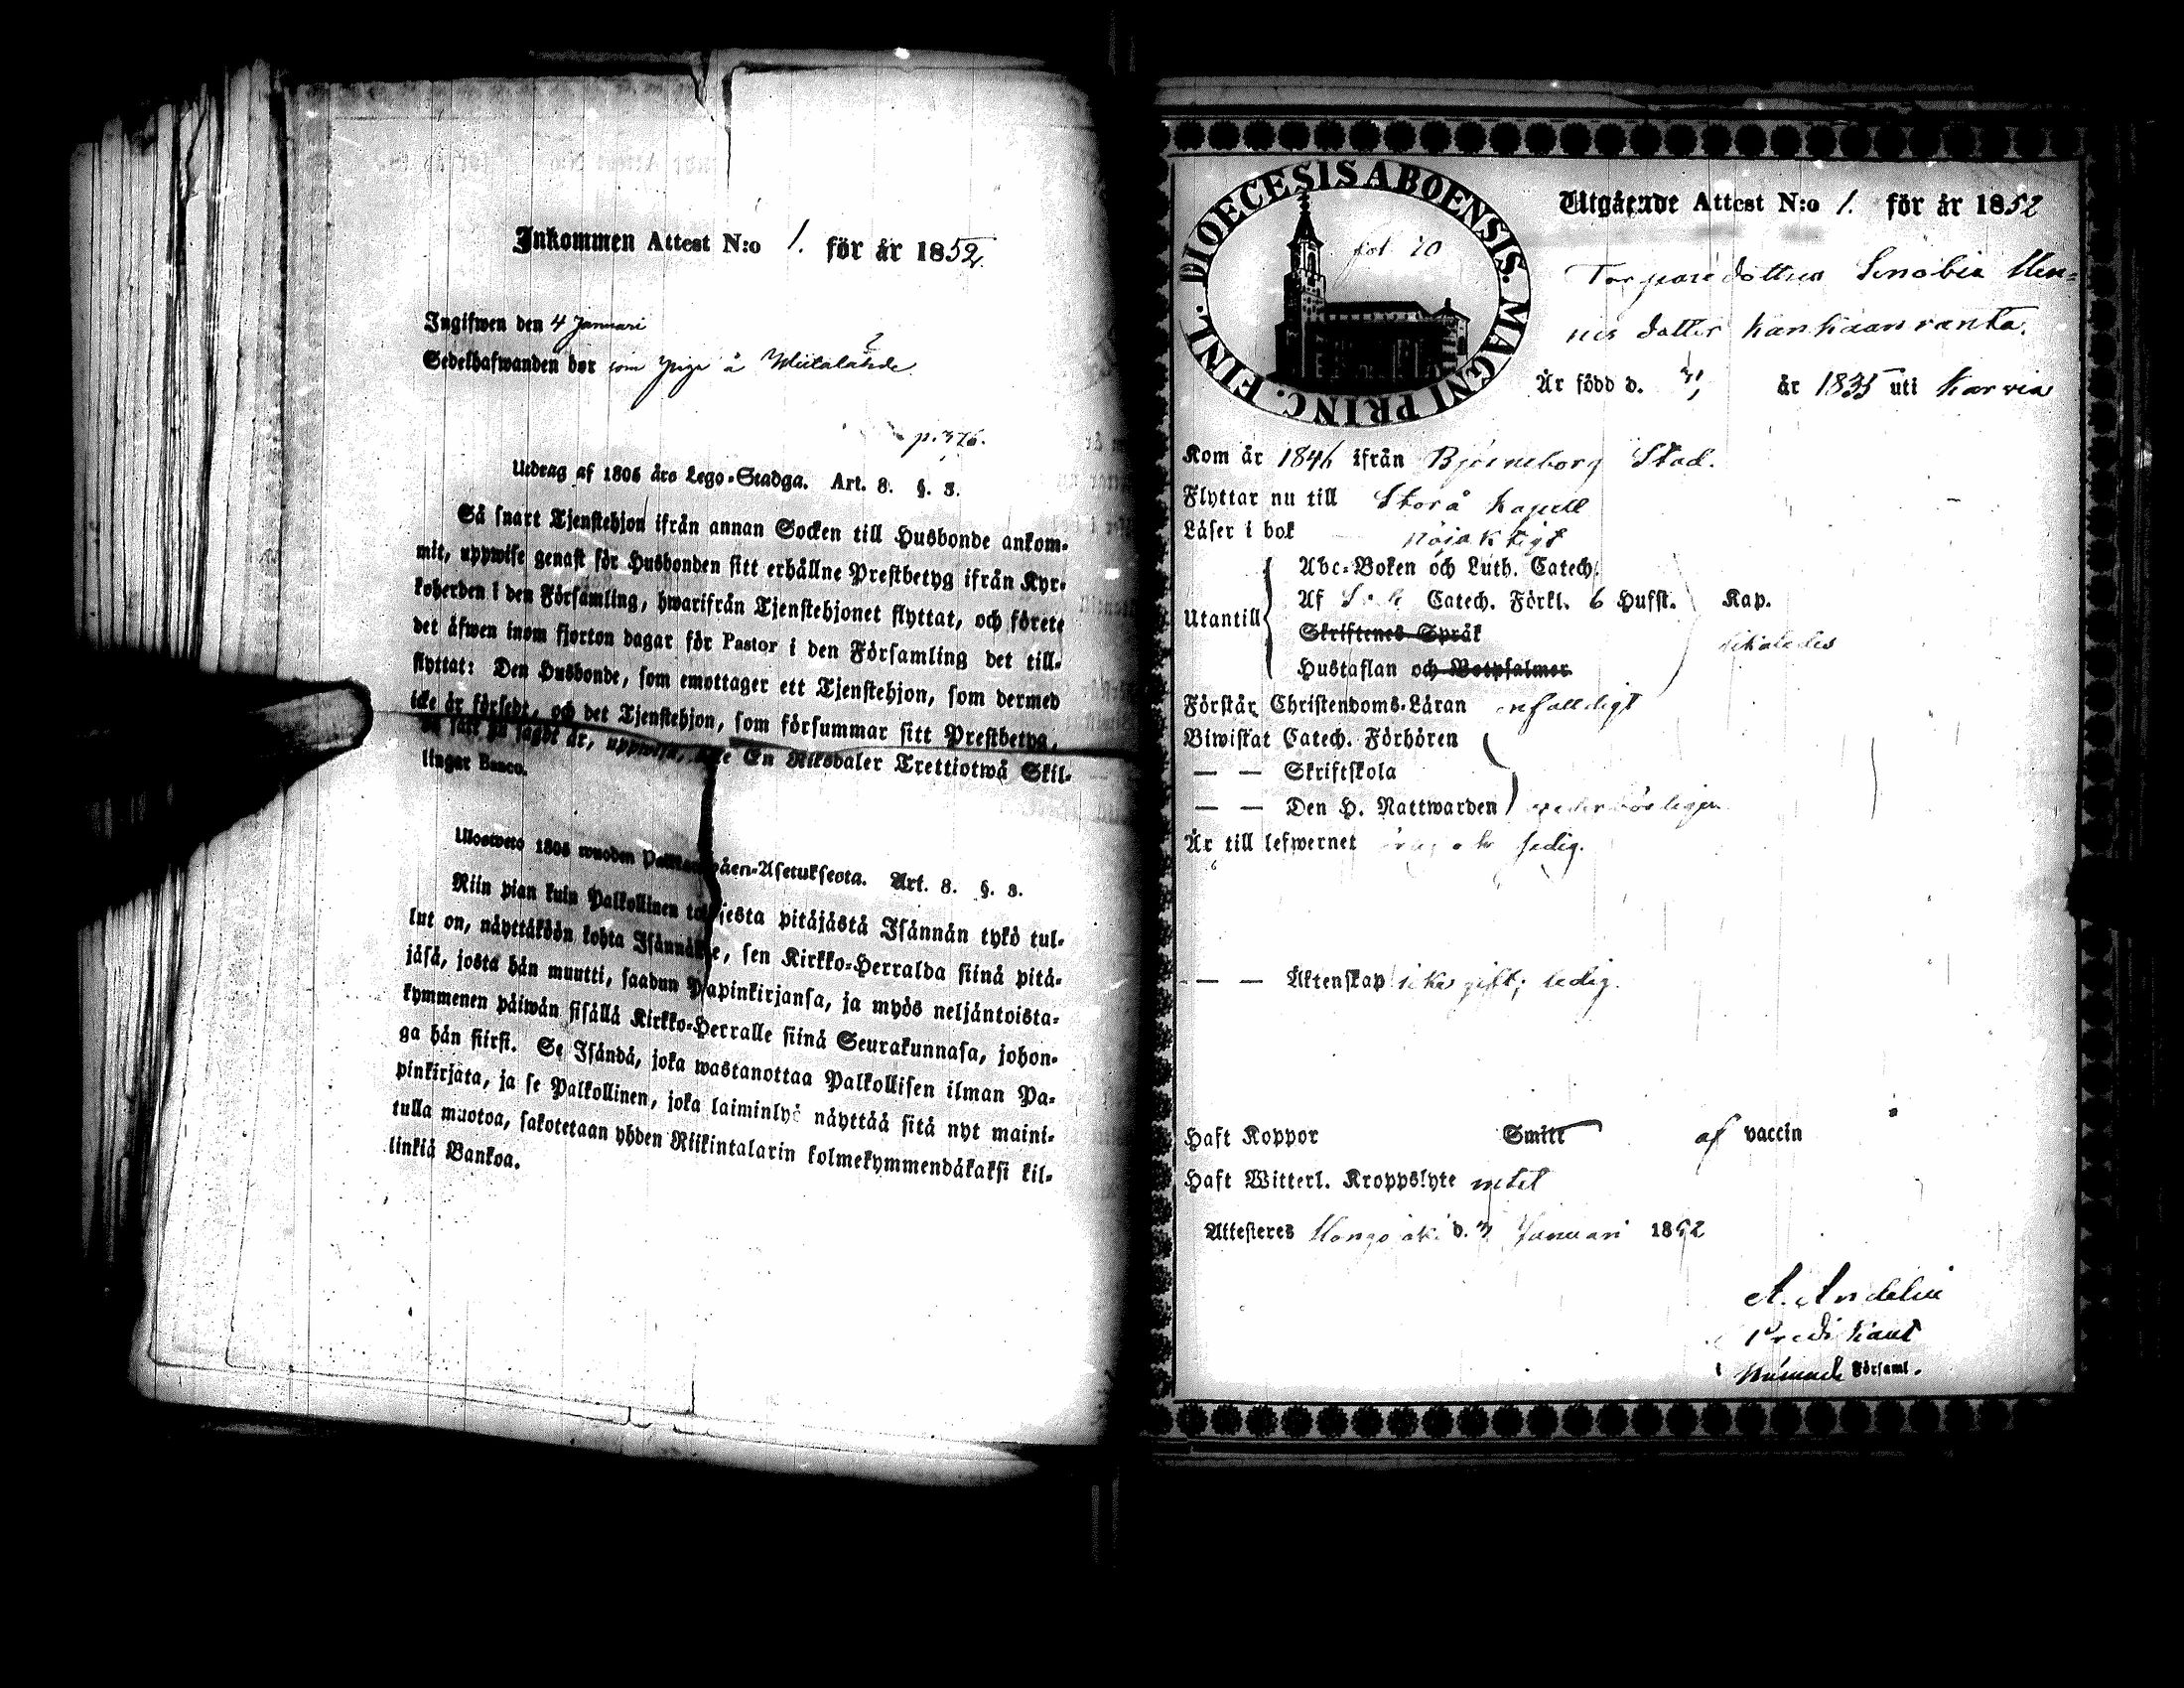 Inkommen Attest N:o 1. för år 1852.
Ingifwen den 4 Januari
Sedelhafwanden bor som piga å
p. 376.
Utdrag af 1805 års Lego-Stadga. Art. 8. §. 8.
Så snart Tjenstehjon ifrån annan Socken till Husbonde ankom-
mit, uppwise genast för Husbonden sitt erhållne Prestbetyg ifrån Kyr-
koherden i den Församling, hwarifrån Tjenstehjonet flyttat, och förete
det äfwen inom fjorton dagar för Pastor i den Församling det till-
flyttat: Den Husbonde, som emottager ett Tjenstehjon, som dermed
icke är försedt, och det Tjenstehjon, som försummar sitt Prestbetyg,
på sätt nu sagdt är, uppwisa, En Riksdaler Trettiotwå Skil-
lingar Banco.
Ulosweto 1805 wuoden Art. 8. §. 8.
Niin pian kuin Palkollinen toisesta pitäjästä Isännän tykö tul-
lut on, näyttäköön kohta Isännälle, sen Kirkko-Herralda siinä pitä-
jäsä, josta hän muutti, saadun Papinkirjansa, ja myös neljäntoista-
kymmenen päiwän sisällä Kirkko-Herralle siinä Seurakunnasa, johon-
ga hän siirsi. Se Isändä, joka wastanottaa Palkollisen ilman Pa-
pinkirjata, ja se Palkollinen, joka laiminlyö näyttää sitä nyt maini-
tulla muotoa, sakotetaan yhden Riikintalarin kolmekymmendäkaksi kil-
linkiä Bankoa.
DIOECESIS ABOENSIS. MAGNI PRINC. FINL.
fol 70
Utgående Attest N:o 1. för år 1852
Torparedottren Senobia Hen-
ries dotter Kankaanranta.
Är född d. år 1835 uti Karvia
Kom år 1846 ifrån Björneborg Stad.
Flyttar nu till Storå Kapell
Läser i bok nöjaktigt
Utantill
Abc-Boken och Luth. Catech.
Af Catech. Förkl. 6 Hufst. Kap.
Skriftenes Språk
likaledes
Hustaflan och Botpsalmer
Förstår Christendoms-Läran enfalldigt
Biwistat Catech. Förhören
— — Skriftskola
— — Den H. Nattwarden vederbörligen
Är till lefwernet ärlig och sedig.
— — Äktenskap icke gift; ledig.
Haft Koppor Smitt af vaccin
Haft Witterl. Kroppslyte intet
Attesteres Hongojoki d. 3 Januari 1852
A. Andelin
Predikant
Församl.